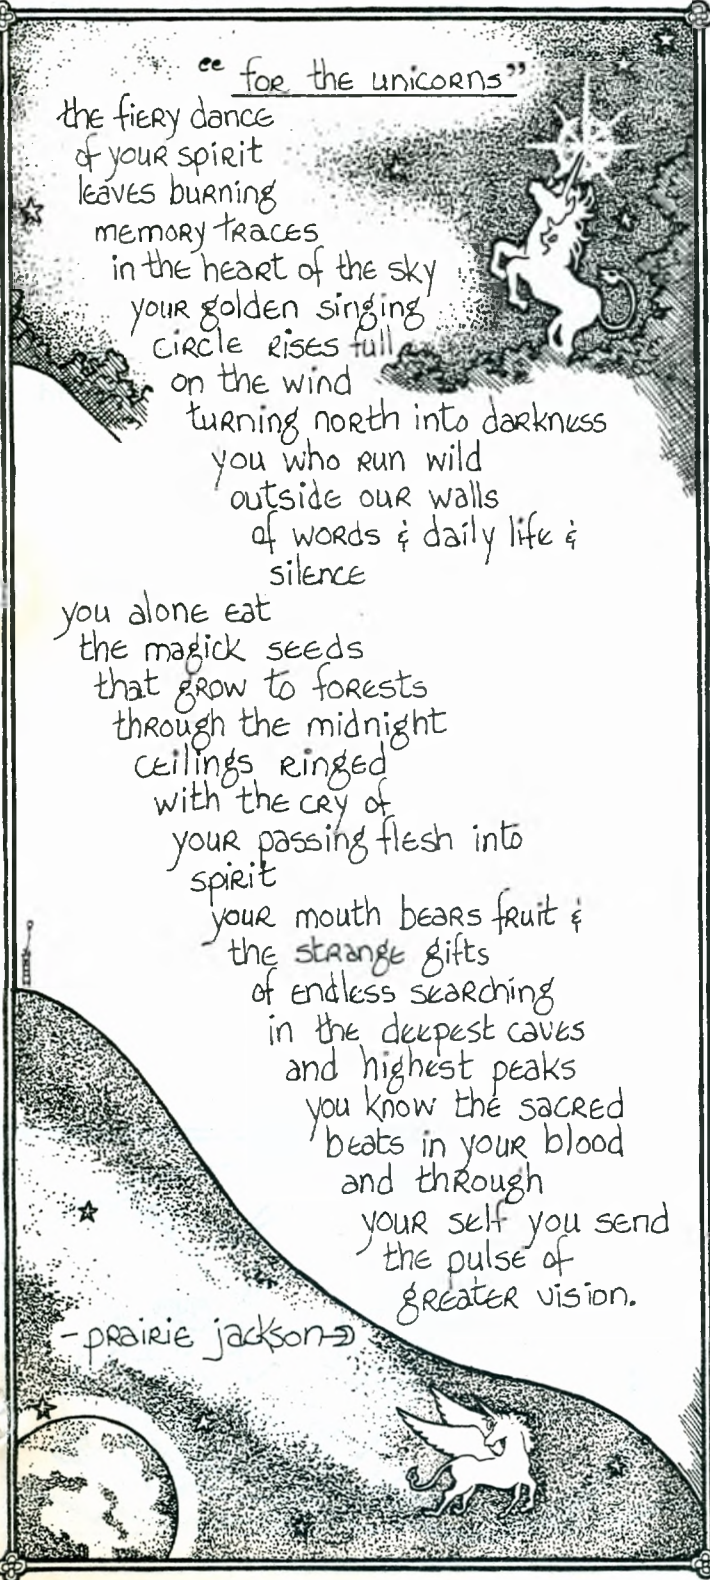 “for the unicorns”
the fiery dance
of your spirit
leaves burning
memory traces
in the heart of the sky
your golden singing
circle rises full
on the wind
turning north into darkness
you who run wild
outside our walls
of words & daily life &
silence
you alone eat
the magick seeds
that grow to forests
through the midnight
ceilings ringed
with the cry of
your passing flesh into
spirit
your mouth bears fruit &
the strange gifts
of endless searching
in the deepest caves
and highest peaks
you know the sacred
beats in your blood
and through
your self you send
the pulse of
greater vision.
-prairie jackson